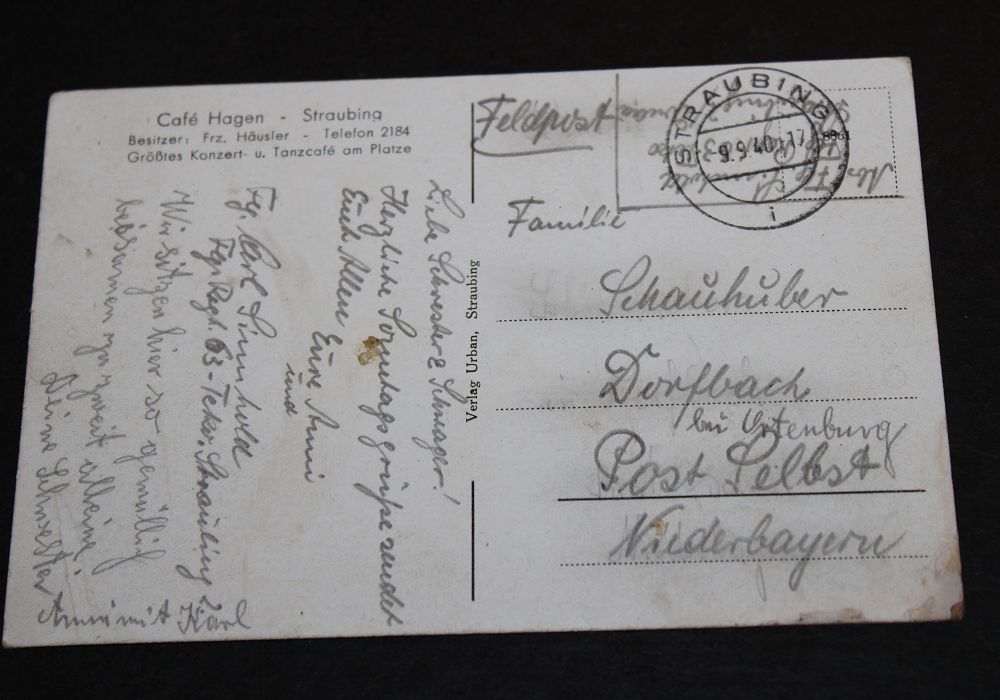 Café Hagen - Straubing
Besitzer: Frz. Häusler - Telefon 2184
Größtes Konzert- u. Tanzcafé am Platze
Liebe Schwester & Schwager!
Herzliche Sonntagsgrüße sendet
Euch Allen Eure Anni
und
Fg. Karl
Wir sitzen hier so gemütlich
beisamen zu zweit alleine
Deine Schwester
Anni mit Karl
Verlag Urban, Straubing
Feldpost
STRAUBING
9.9.40.-17
i
Familie
Schauhuber
Dorfbach
bei Ortenburg
Post Selbst
Niederbayern